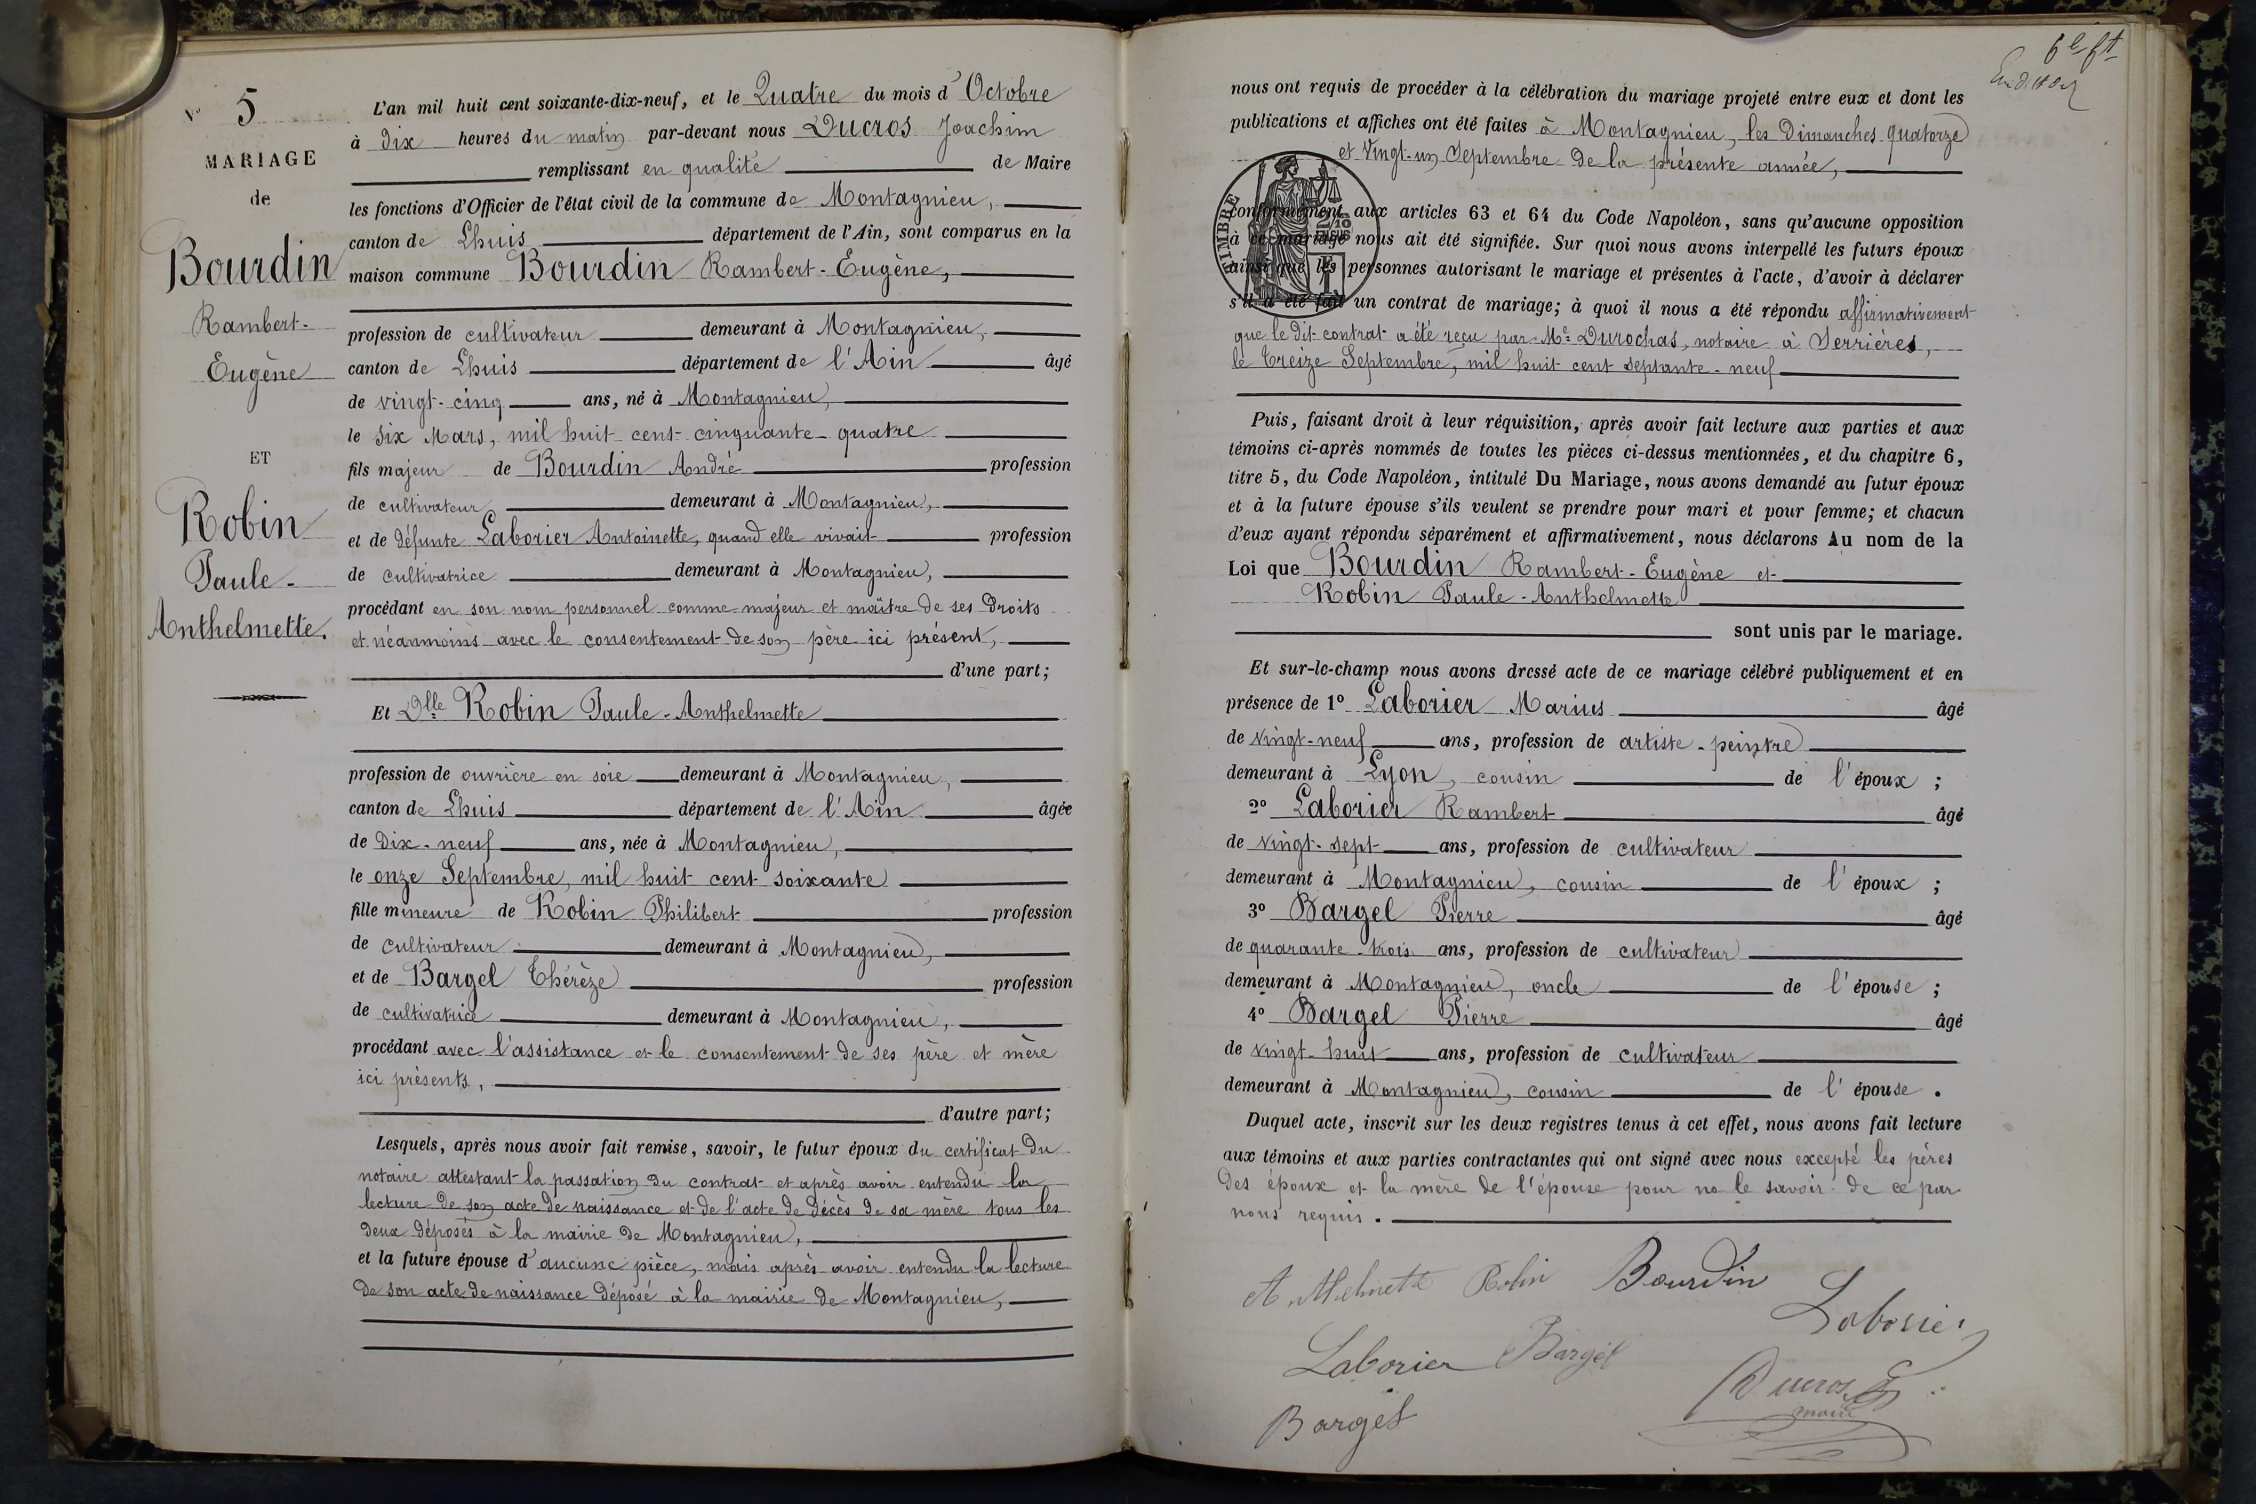 N° 5
MARIAGE
de
Bourdin
Rambert-
Eugène
ET
Robin
Paule-
Anthelmette.
L'an mil huit cent soixante-dix-neuf, et le Quatre du mois d'Octobre
à dix heures du matin par-devant nous Ducros Joachim
remplissant en qualité de Maire
les fonctions d'Officier de l'état civil de la commune de Montagnieu,
canton de Lhuis département de l'Ain, sont comparus en la
maison commune Bourdin Rambert-Eugène,
profession de cultivateur demeurant à Montagnieu,
canton de Lhuis département de l'Ain âgé
de vingt-cinq ans, né à Montagnieu,
le six Mars, mil huit cent cinquante-quatre
fils majeur de Bourdin André profession
de cultivateur demeurant à Montagnieu,
et de défunte Laborier Antoinette, quand elle vivait profession
de cultivatrice demeurant à Montagnieu,
procédant en son nom personnel comme majeur et maître de ses droits
et néanmoins avec le consentement de son père ici présent,
d'une part;
Et Dlle Robin Paule-Anthelmette
profession de ouvrière en soie demeurant à Montagnieu,
canton de Lhuis département de l'Ain âgée
de dix-neuf ans, née à Montagnieu,
le onze Septembre, mil huit cent soixante
fille mineure de Robin Philibert profession
de cultivateur demeurant à Montagnieu,
et de Bargel Thérèze profession
de cultivatrice demeurant à Montagnieu,
procédant avec l'assistance et le consentement de ses père et mère
ici présents,
d'autre part;
Lesquels, après nous avoir fait remise, savoir, le futur époux du certificat du
notaire attestant la passation du contrat et après avoir entendu la
lecture de son acte de naissance et de l'acte de décès de sa mère tous les
deux déposés à la mairie de Montagnieu,
et la future épouse d'aucune pièce, mais après avoir entendu la lecture
de son acte de naissance déposé à la mairie de Montagnieu,
6e ft
nous ont requis de procéder à la célébration du mariage projeté entre eux et dont les
publications et affiches ont été faites à Montagnieu, les Dimanches quatorze
et Vingt-un Septembre de la présente année,
TIMBRE
conformément aux articles 63 et 64 du Code Napoléon, sans qu'aucune opposition
à ce mariage nous ait été signifiée. Sur quoi nous avons interpellé les futurs époux
ainsi que les personnes autorisant le mariage et présentes à l'acte, d'avoir à déclarer
s'il a été fait un contrat de mariage; à quoi il nous a été répondu affirmativement
que le dit contrat a été reçu par Me Durochas, notaire à Serrières,
le treize Septembre, mil huit cent septante-neuf
Puis, faisant droit à leur réquisition, après avoir fait lecture aux parties et aux
témoins ci-après nommés de toutes les pièces ci-dessus mentionnées, et du chapitre 6,
titre 5, du Code Napoléon, intitulé Du Mariage, nous avons demandé au futur époux
et à la future épouse s'ils veulent se prendre pour mari et pour femme; et chacun
d'eux ayant répondu séparément et affirmativement, nous déclarons Au nom de la
Loi que Bourdin Rambert-Eugène et
Robin Paule-Anthelmette
sont unis par le mariage.
Et sur-le-champ nous avons dressé acte de ce mariage célébré publiquement et en
présence de 1° Laborier Marius âgé
de vingt-neuf ans, profession de artiste-peintre
demeurant à Lyon, cousin de l'époux ;
2° Laborier Rambert âgé
de vingt-sept ans, profession de cultivateur
demeurant à Montagnieu, cousin de l'époux ;
3° Bargel Pierre âgé
de quarante-trois ans, profession de cultivateur
demeurant à Montagnieu, oncle de l'épouse ;
4° Bargel Pierre âgé
de vingt-huit ans, profession de cultivateur
demeurant à Montagnieu, cousin de l'épouse .
Duquel acte, inscrit sur les deux registres tenus à cet effet, nous avons fait lecture
aux témoins et aux parties contractantes qui ont signé avec nous excepté les pères
des époux et la mère de l'épouse pour ne le savoir de ce par
nous requis.
Anthelmette Robin Bourdin
Laborier
Laborier Bargel
Ducros
maire
Bargel